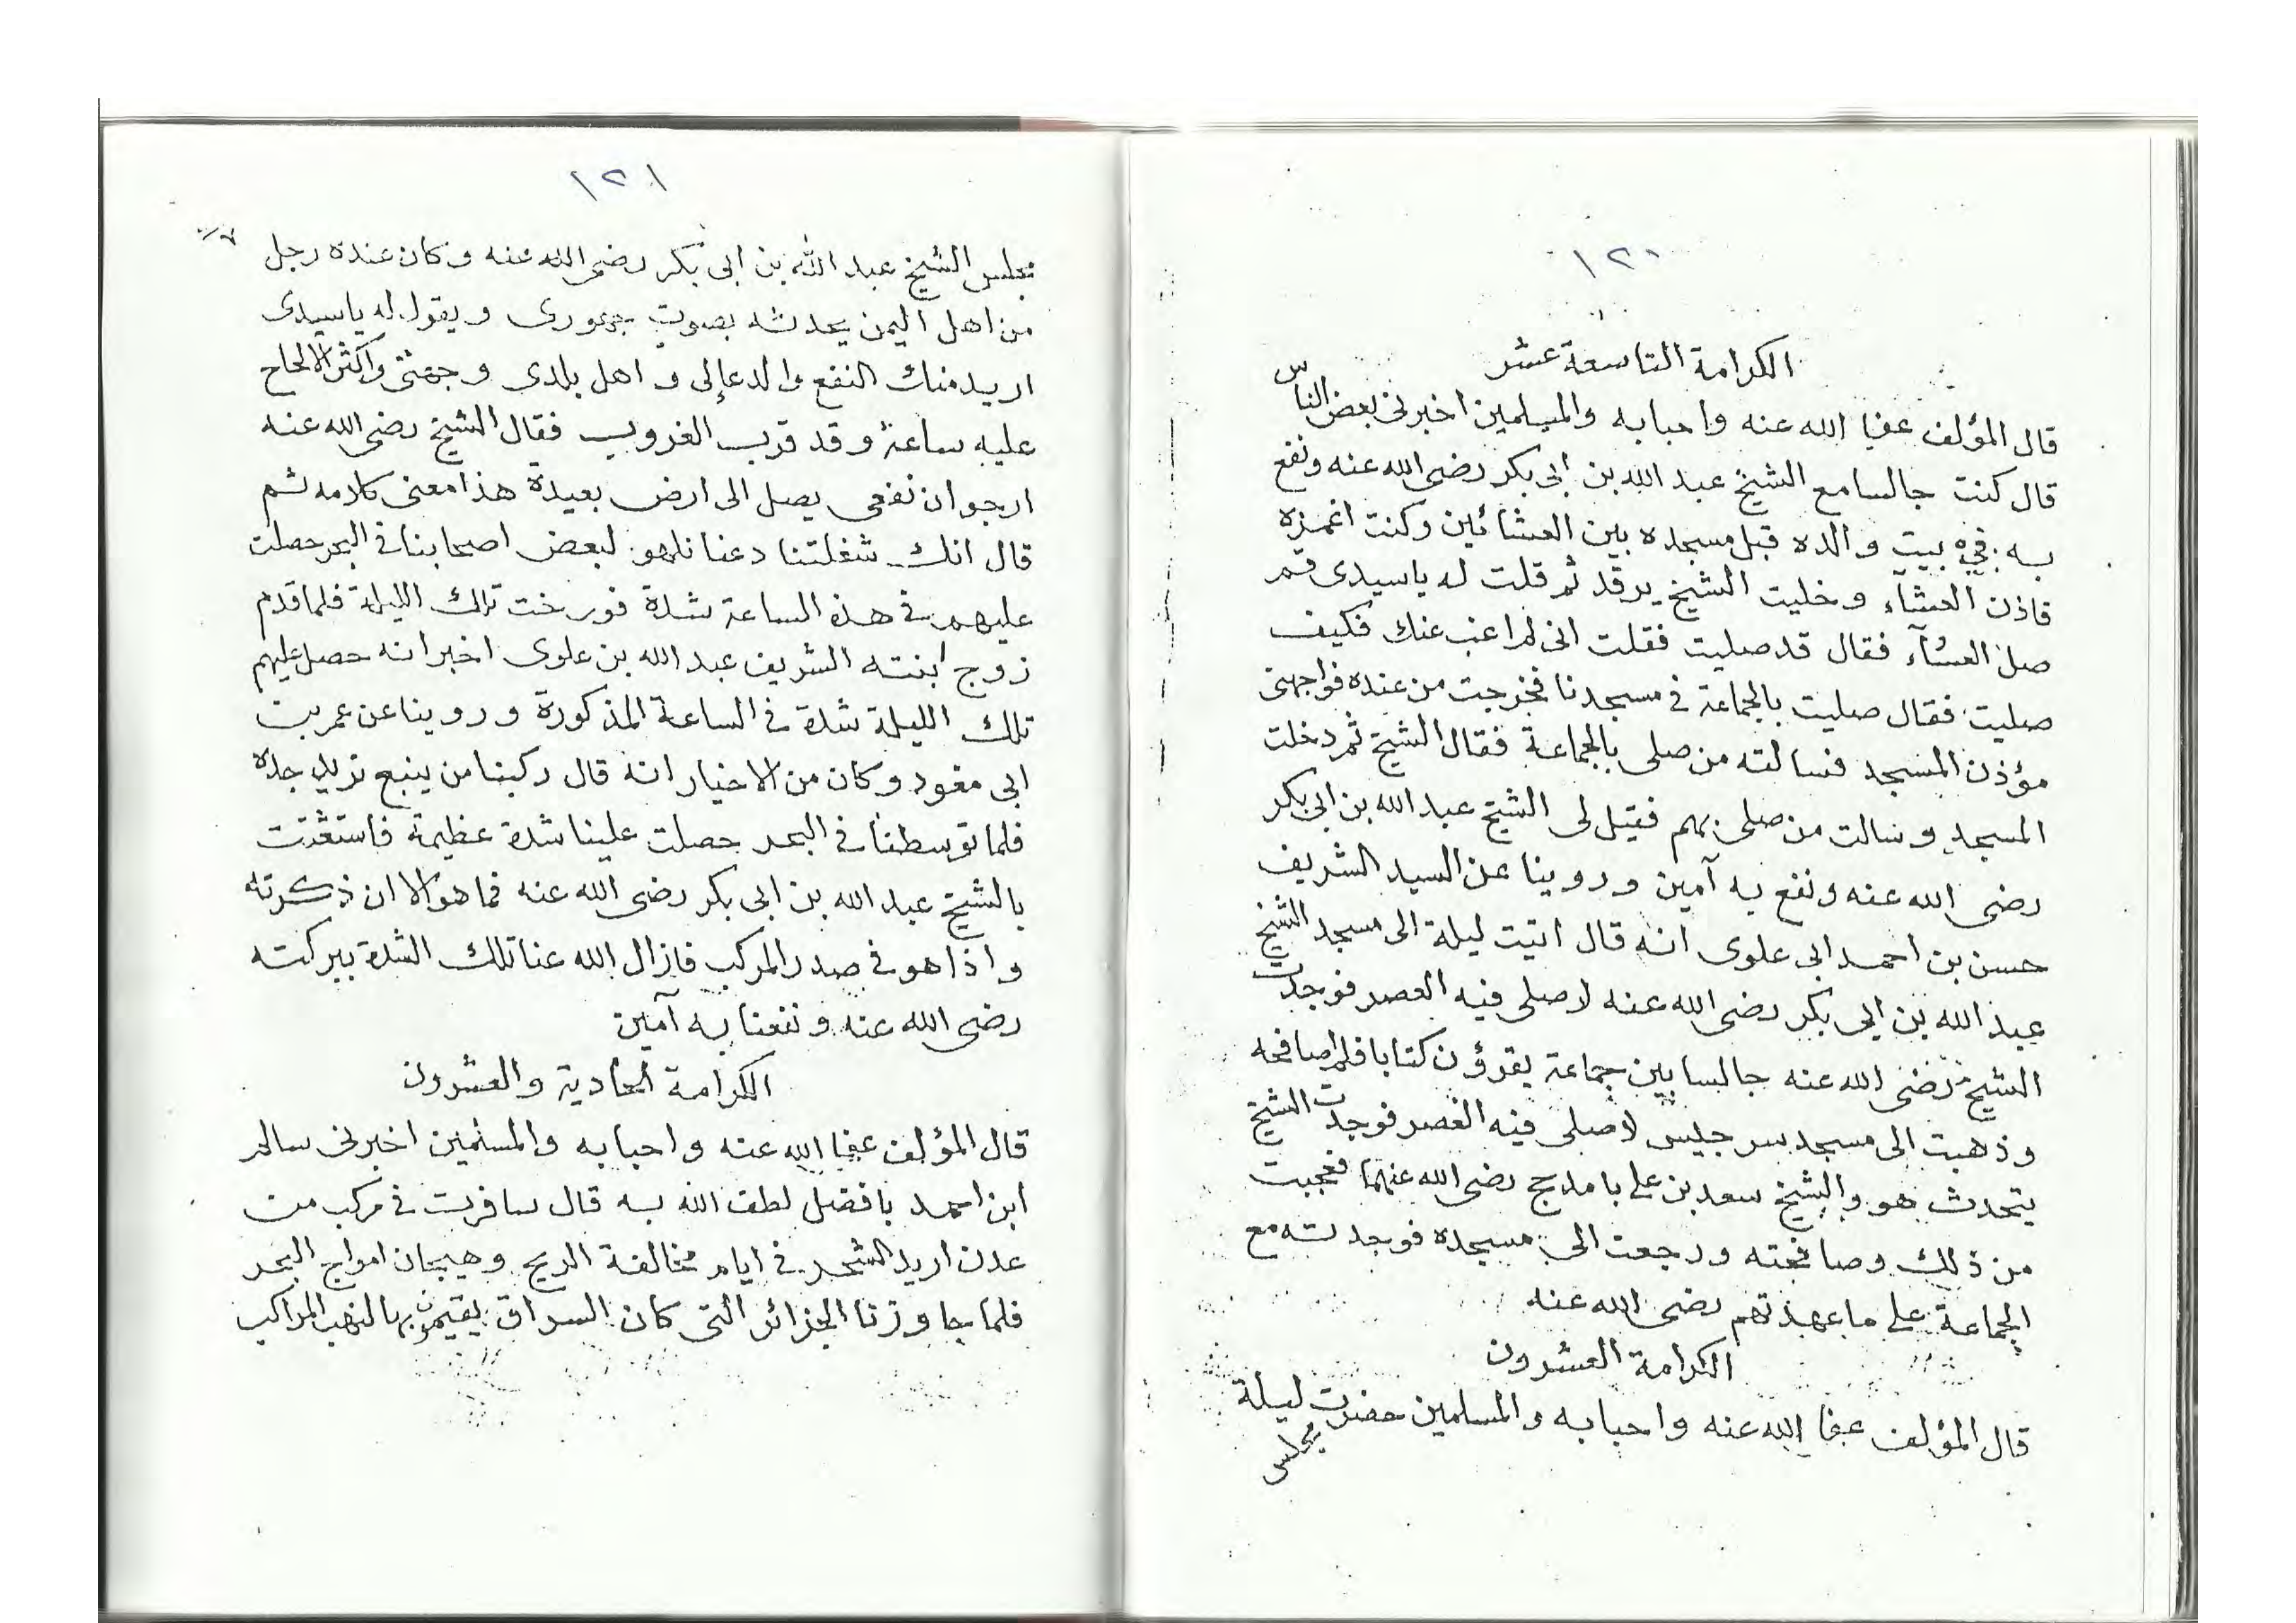 ١٢٠
الكرامة التاسعة عشر
قال المؤلف عفا الله عنه واحبابه والمسلمين اخبرنى بعض الناس
قال كنت جالسا مع الشيخ عبد الله بن ابى بكر رضى الله عنه ونفع
به في بيت والده قبل مسجده بين العشائين وكنت اغمزه
فاذن العشآء وخليت الشيخ يرقد ثم قلت له ياسيدى قم
صل العشآء فقال قد صليت فقلت انى لم اغب عنك فكيف
صليت فقال صليت بالجماعة فى مسجدنا فخرجت من عنده فواجهنى
مؤذن المسجد فسالته من صلى بالجماعة فقال الشيخ ثم دخلت
المسجد وسالت من صلى بهم فقيل لى الشيخ عبد الله بن ابى بكر
رضى الله عنه ونفع به آمين وروينا عن السيد الشريف
حسن بن احمد ابى علوى انه قال اتيت ليلة الى مسجد الشيخ
عبد الله بن ابى بكر رضى الله عنه لاصلى فيه العصر فوجدت
الشيخ رضى الله عنه جالسا بين جماعة يقرؤن كتابا فلم اصافحه
وذهبت الى مسجد سرجيس لاصلى فيه العصر فوجدت الشيخ
يتحدث هو والشيخ سعد بن على بامدحج رضى الله عنهما فعجبت
من ذلك وصافحته ورجعت الى مسجده فوجدته مع
الجماعة على ما عهدتهم رضى الله عنه
الكرامة العشرون
قال المؤلف عفا الله عنه واحبابه والمسلمين حضرت ليلة
مجلس
١٢١
مجلس الشيخ عبد الله بن ابى بكر رضى الله عنه وكان عنده رجل
من اهل اليمن يحدثه بصوت جهورى ويقول له ياسيدى
اريد منك النفع والدعا لى و اهل بلدى وجهتى واكثر الالحاح
عليه ساعة وقد قرب الغروب فقال الشيخ رضى الله عنه
ارجو ان نفعى يصل الى ارض بعيدة هذا معنى كلامه ثم
قال انك شغلتنا دعنا نلهو لبعض اصحابنا فى البحر حصلت
عليهم فى هذه الساعة شدة فورخت تلك الليلة فلما قدم
زوج ابنته الشريف عبد الله بن علوى اخبر انه حصل عليهم
تلك الليلة شدة فى الساعة المذكورة وروينا عن عمر بن
ابى مغود وكان من الاخيار انه قال ركبنا من ينبع نريد جدة
فلما توسطنا فى البحر حصلت علينا شدة عظيمة فاستغثت
بالشيخ عبد الله بن ابى بكر رضى الله عنه فما هو الا ان ذكرته
واذا هو فى صدر المركب فازال الله عنا تلك الشدة ببركته
رضى الله عنه ونفعنا به آمين
الكرامة الحادية والعشرون
قال المؤلف عفا الله عنه واحبابه والمسلمين اخبرنى سالم
ابن احمد بافضل لطف الله به قال سافرت فى مركب من
عدن اريد الشحر فى ايام مخالفة الريح وهيجان امواج البحر
فلما جاوزنا الجزائر التى كان السراق يقيمون بها لنهب المراكب